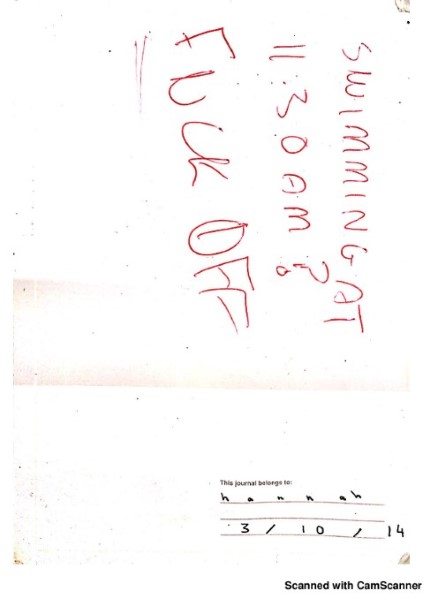 SWIMMING AT
11:30 AM?
FUCK OFF
This journal belongs to:
hannah
3 / 10 / 14
Scanned with CamScanner